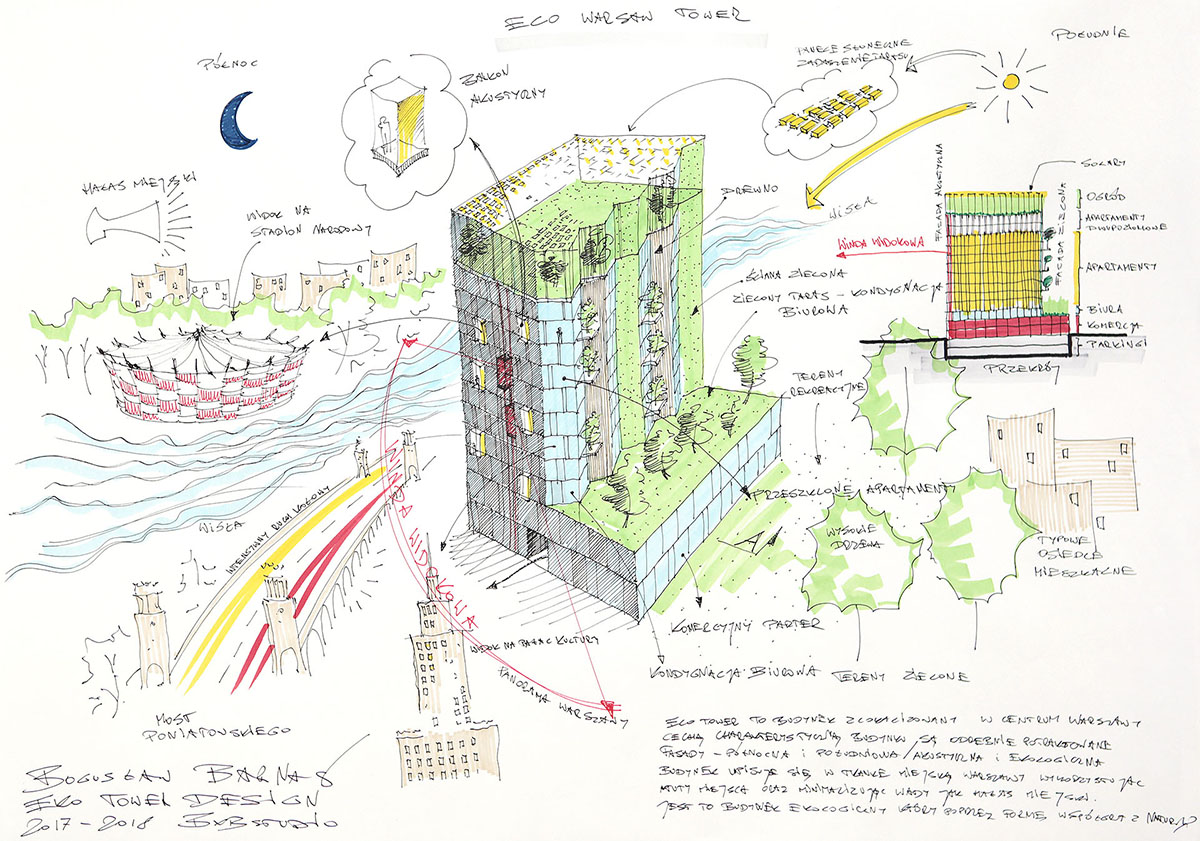 ECO WARSAW TOWER
PÓŁNOC
BALKON
AKUSTYCZNY
PANELE SŁONECZNE
ZADASZENIE TARASU
POŁUDNIE
HAŁAS MIEJSKI
WIDOK NA
STADION NARODOWY
DREWNO
WISŁA
WINDA WIDOKOWA
ŚCIANA ZIELONA
ZIELONY TARAS - KONDYGNACJA
BIUROWA
FASADA AKUSTYCZNA
FASADA ZIELONA
SOLARY
OGRÓD
APARTAMENTY
DWUPOZIOMOWE
APARTAMENTY
BIURA
KOMERCJA
PARKINGI
PRZEKRÓJ
TERENY
REKREACYJNE
PRZESZKLONE APARTAMENTY
WYSOKIE
DRZEWA
TYPOWE
OSIEDLE
MIESZKALNE
WISŁA
INTENSYWNY RUCH KOŁOWY
WINDA WIDOKOWA
WIDOK NA PAŁAC KULTURY
PANORAMA WARSZAWY
A
KOMERCYJNY PARTER
KONDYGNACJA BIUROWA
TERENY ZIELONE
MOST
PONIATOWSKIEGO
BOGUSŁAW BARNAŚ
EKO TOWER DESIGN
2017 - 2018 BXBSTUDIO
ECO TOWER TO BUDYNEK ZLOKALIZOWANY W CENTRUM WARSZAWY
CECHĄ CHARAKTERYSTYCZNĄ BUDYNKU SĄ ODRĘBNIE POTRAKTOWANE
FASADY - PÓŁNOCNA I POŁUDNIOWA / AKUSTYCZNA I EKOLOGICZNA
BUDYNEK WPISUJE SIĘ W TKANKĘ MIEJSKĄ WARSZAWY WYKORZYSTUJĄC
ATUTY MIEJSCA ORAZ MINIMALIZUJĄC WADY JAK HAŁAS MIEJSKI.
JEST TO BUDYNEK EKOLOGICZNY KTÓRY POPRZEZ FORMĘ WSPÓŁGRA Z NATURĄ